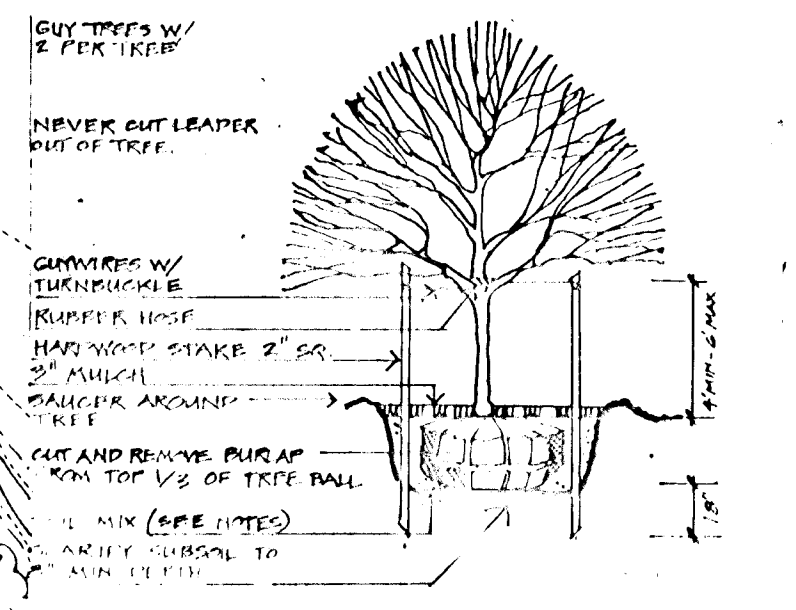 GUY TREES W/
2 PER TREE
NEVER CUT LEADER
OUT OF TREE.
GUYWIRES W/
TURNBUCKLE
RUBBER HOSE
HARDWOOD STAKE 2" SQ.
3" MULCH
SAUCER AROUND
TREE
CUT AND REMOVE BURLAP
FROM TOP 1/3 OF TREE BALL
SOIL MIX (SEE NOTES)
SCARIFY SUBSOIL TO
MIN DEPTH
4' MIN - 6' MAX
18"